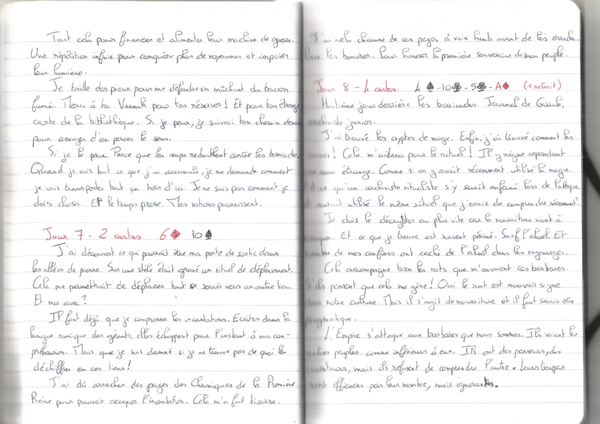 Tout cela pour financer et alimenter leur machine de guerre.
Une répétition infinie pour conquérir plus de royaumes et imposer
leur lumière.
Je taille des pieux pour me défendre en mâchant du bacon
fumé. Merci à to pour tes réserves! Et pour ton étrange
carte de la bibliothèque. Si je peux, je suivrai ton chemin
pour essayer d'en percer le secret.
Si je le peux. Parce que les coups redoublent contre les barricades.
Quand je vois tout ce que j'ai accumulé, je me demande comment
je vais transporter tout ça hors d'ici. Je ne sais pas comment je
dois choisir. Et le temps presse. Mes rations pourrissent.
Jour 7 - 2 cartes 6♦ 10♠
J'ai découvert ce qui pourrait être ma porte de sortie dans
les allées de pierre. Sur une stèle était gravé un rituel de déplacement.
Cela me permettrait de déplacer tout ce savoir vers un autre lieu.
Et moi avec?
Il faut déjà que je comprenne les incantations. Écrites dans la
langue runique des géants, elles échappent pour l'instant à ma com-
préhension. Mais que je sois damné si je ne trouve pas de quoi le
déchiffrer en ces lieux!
J'ai dû arracher des pages des Chroniques de la Première
Reine pour pouvoir recopier l'incantation. Cela m'a fait bizarre.
J'ai relu chacune de ces pages à voix haute avant de les arracher.
les honorer. Pour honorer la première souveraine de mon peuple.
Jour 8 - 4 cartes 4♠ - 10♣ - 5♣ - A♦ (1 récit)
Huitième jour derrière les barricades. Journal de
archiviste junior.
J'ai trouvé les cryptes de magie. Enfin, j'ai trouvé comment les
! Cela m'aidera pour le rituel! Il y règne cependant
une étrange. Comme si on y avait récemment utilisé la magie.
qu'un archiviste ritualiste s'y serait enfermé lors de l'attaque
et aurait utilisé le même rituel que j'essaie de comprendre récemment.
Je dois le décrypter au plus vite car la nourriture vient à
manquer. Et ce que je trouve est souvent périmé. Sauf l'alcool. Et
de mes confrères ont caché de l'alcool dans les rayonnages.
Cela accompagne bien les rats que m'envoient ces barbares.
S'ils pensent que cela me gêne! Oui le rat est mauvais signe
notre culture. Mais il s'agit de nourriture et il faut savoir être
pragmatique.
L'Empire s'attaque aux barbares que nous sommes. Ils voient les
autres peuples comme inférieurs à eux. Ils ont des penseurs, des
inventeurs, mais ils refusent de comprendre l'autre. Leurs troupes
sont efficaces par leur nombre, mais ignorantes.